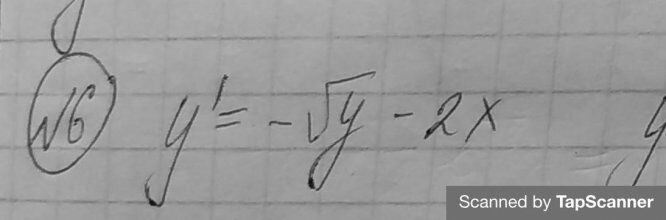 №6 y' = -√y - 2x y
Scanned by TapScanner